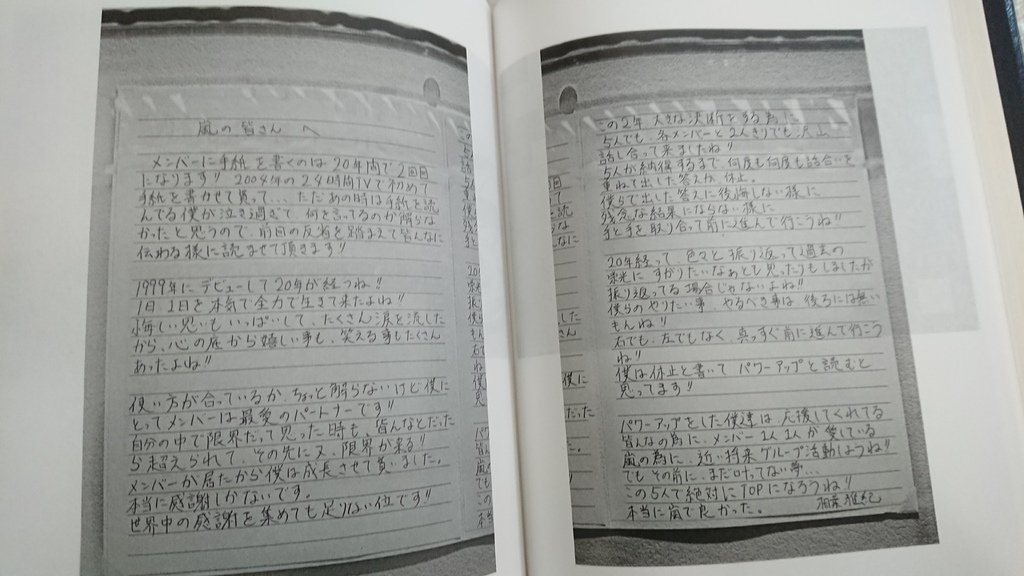 嵐の皆さん へ
メンバーに手紙を書くのは20年間で2回目
になります!! 2004年の24時間TVで初めて
手紙を書かせて貰って… ただあの時は手紙を読
んでる僕が泣き過ぎて、何を言ってるのか解らな
かったと思うので 前回の反省を踏まえて皆んなに
伝わる様に読ませて頂きます!!
1999年にデビューして20年が経つね!!
1日1日を本気で全力で生きて来たよね!!
悔しい思いもいっぱいして たくさん涙を流した
から、心の底から嬉しい事も、笑える事もたくさん
あったよね!!
使い方が合っているか、ちょっと解らないけど僕に
とってメンバーは最愛のパートナーです!!
自分の中で限界だって思った時も、皆んなとだった
ら超えられて、その先に又、限界が来る!!
メンバーが居たから僕は成長させて貰いました。
本当に感謝しかないです。
世界中の感謝を集めても足りない位です!!
この2年 大きな決断をする為に
5人でも、各メンバーと2人きりでも、沢山
話し合って来ましたね!!
5人が納得するまで 何度も何度も話合いを
重ねて出した答えが、休止。
僕らで出した答えに後悔しない様に
残念な結果にならない様に
手と手を取り合って前に進んで行こうね!!
20年経って 色々と振り返って過去の
栄光に すがりたいなぁとも思ったりもしましたが
振り返ってる場合じゃないよね!!
僕らのやりたい事、やるべき事は 後ろには無い
もんね!!
右でも、左でもなく 真っすぐ前に進んで行こう
ね!!
僕は休止と書いて パワーアップと読むと
思ってます!!
パワーアップをした僕達は 応援してくれてる
皆んなの為に、メンバー1人1人が愛している
嵐の為に、近い将来グループ活動しようね!!
でもその前に…まだ叶ってない夢…
この5人で絶対にTOPになろうね!!
本当に嵐で良かった。 相葉雅紀